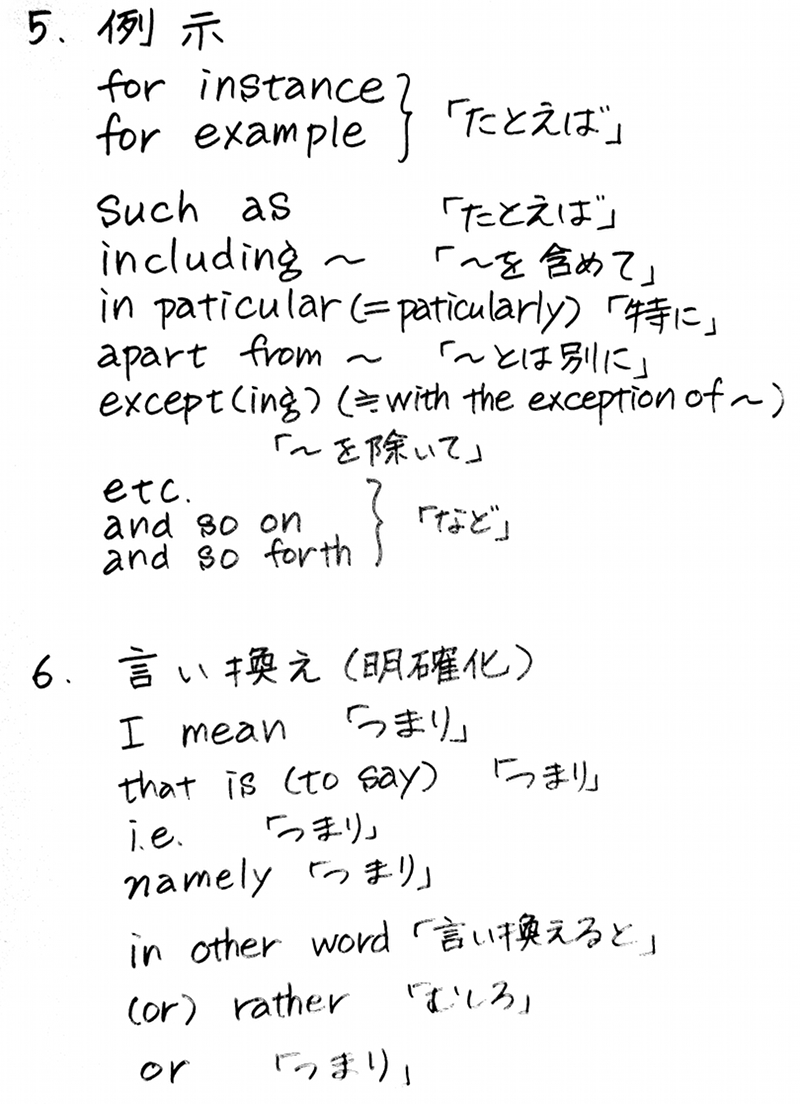 5. 例示
for instance
for example } 「たとえば」
such as 「たとえば」
including ~ 「~を含めて」
in paticular (= paticularly) 「特に」
apart from ~ 「~とは別に」
except(ing) (≒with the exception of ~)
「~を除いて」
etc.
and so on } 「など」
and so forth
6. 言い換え (明確化)
I mean 「つまり」
that is (to say) 「つまり」
i.e. 「つまり」
namely 「つまり」
in other word 「言い換えると」
(or) rather 「むしろ」
or 「つまり」